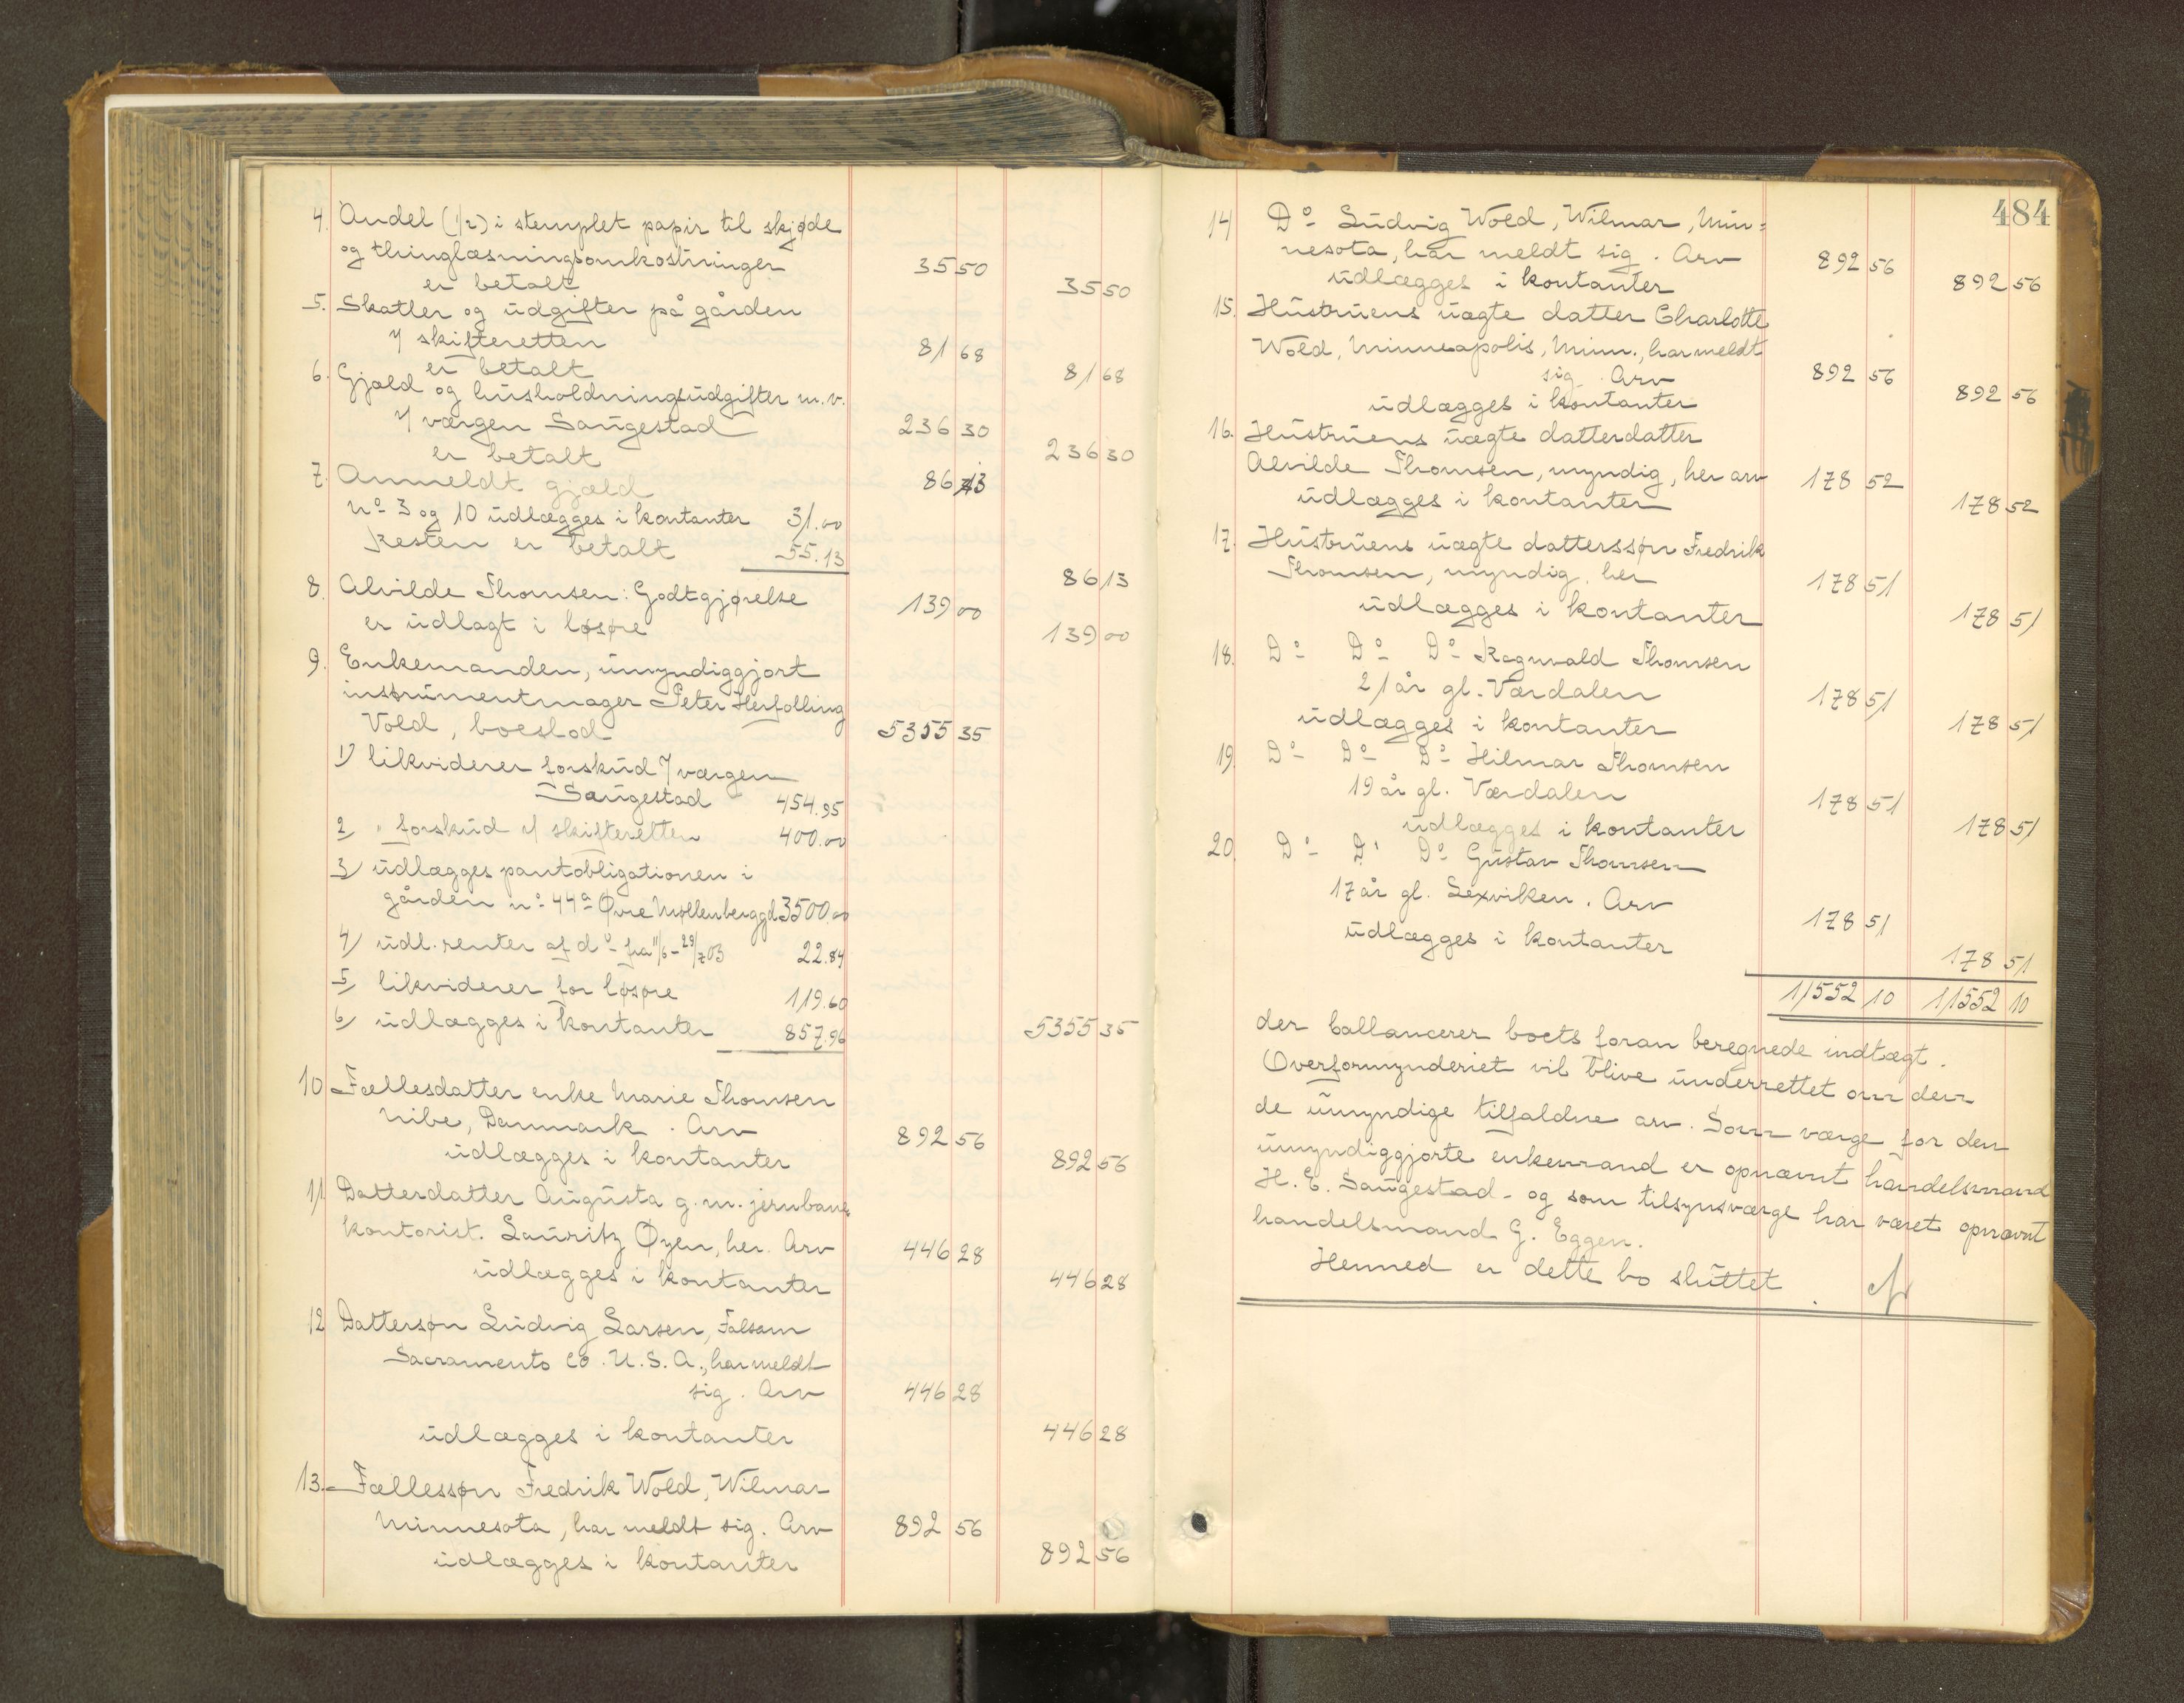 4. Andel (1/2) i stemplet papir til skjøde
og thinglæsningsomkostninger 35 50
er betalt 35 50
5. Skatter og udgifter på gården
v/ skifteretten 81 68
er betalt 81 68
6. Gjæld og husholdningsudgifter m.v.
v/ værgen Saugestad 236 30
er betalt 236 30
7. Anmeldt gjæld 86 13
No 3 og 10 udlægges i kontanter 31.00
Resten er betalt 55.13
86 13
8. Alvilde Thomsen: Godtgjørelse 139 00
er udlagt i løsøre 139 00
9. Enkemanden, umyndiggjort
instrumentmager Peter Herfolling
Vold, boeslod 5355 35
1) likviderer forskud v/ værgen
Saugestad 454.95
2) " forskud v/ skifteretten 400.00
3) udlægges pantobligationen i
gården no 44a Øvre Møllenberggd 3500.00
4) udl. renter af do fra 11/6 - 29/7 03 22.84
5) likviderer for løsøre 119.60
6) udlægges i kontanter 857.96
5355 35
10 Fællesdatter enke Marie Thomsen
Nibe, Danmark. Arv 892 56
udlægges i kontanter 892 56
11 Datterdatter Augusta g.m. jernbane-
kontorist. Lauritz Øyen, her. Arv 446 28
udlægges i kontanter 446 28
12 Dattersøn Ludvig Larsen, Falsam
Sacramento Co. U.S.A., har meldt
sig. Arv 446 28
udlægges i kontanter 446 28
13. Fællessøn Fredrik Wold, Wilmar
Minnesota, har meldt sig. Arv 892 56
udlægges i kontanter 892 56
484
14 Do Ludvig Wold, Wilmar, Min=
nesota, har meldt sig. Arv 892 56
udlægges i kontanter 892 56
15. Hustruens uægte datter Charlotte
Wold, Minneapolis, Minn., har meldt
sig. Arv 892 56
udlægges i kontanter 892 56
16. Hustruens uægte datterdatter
Alvilde Thomsen, myndig, her arv 178 52
udlægges i kontanter 178 52
17. Hustruens uægte datterssøn Fredrik
Thomsen, myndig, her 178 51
udlægges i kontanter 178 51
18. Do Do Do Ragnvald Thomsen
21 år gl. Værdalen 178 51
udlægges i kontanter 178 51
19. Do Do Do Hilmar Thomsen
19 år gl. Værdalen 178 51
udlægges i kontanter 178 51
20. Do Do Do Gustav Thomsen
17 år gl. Lexviken. Arv 178 51
udlægges i kontanter 178 51
11552 10 11552 10
der ballancerer boets foran beregnede indtægt.
Overformynderiet vil blive underrettet om den
de umyndige tilfaldne arv. Som værge for den
umyndiggjorte enkemand er opnævnt handelsmand
H. E. Saugestad - og som tilsynsværge har været opnævnt
handelsmand G. Eggen.
Hermed er dette bo sluttet.